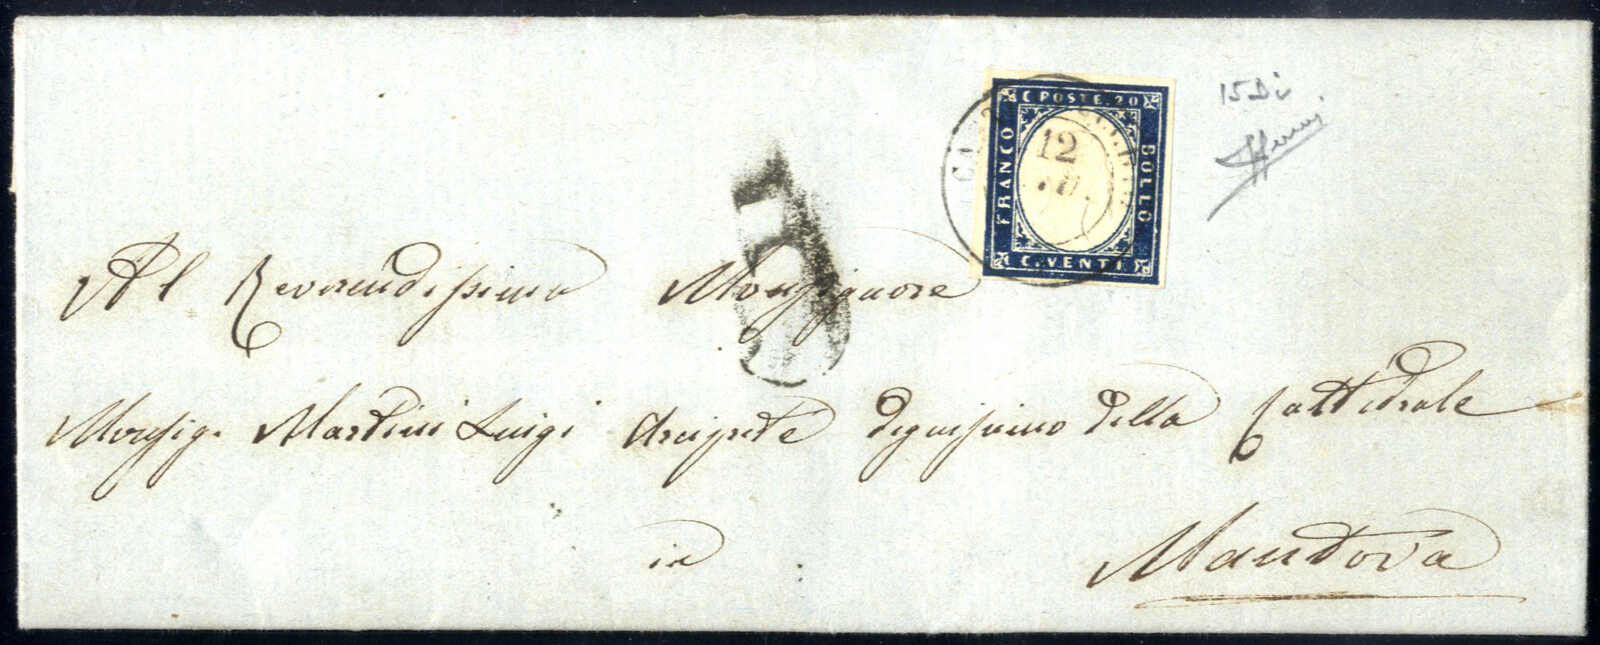 C. POSTE. 20
FRANCO
BOLLO
C. VENTI
12
15Di
Al Reverendissimo Monsignore
Monsig. Martini Luigi Arciprete degnissimo della Cattedrale
in
Mantova